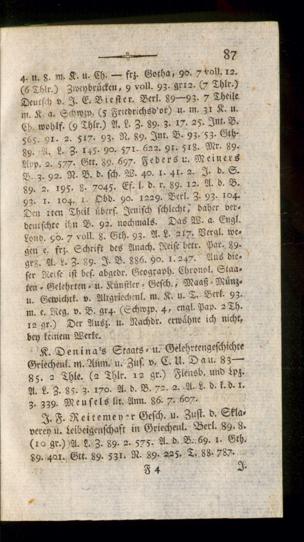 87
4. u. 8. m. K. u. Ch. — frz. Gotha, 90. 7 voll. 12.
(6 Thlr.) Zweybrücken, 9 voll. 93. gr12. (7 Thlr.)
Deutsch v. J. E. Biester. Berl. 89—93. 7 Theile
m. K. a. Schwzp. (5 Friedrichsd'or) u. m. 31 K. u.
Ch. wohlf. (9 Thlr.) A. L. Z. 89. 3. 17. 25. Int. B.
565. 91. 2. 517. 93. N. 89. Int. B. 93. 53. Gth.
89. A. L. Z. 145. 90. 571. 622. 91. 518. Mr. 89.
App. 2. 577. Gtt. 89. 697. Feders u. Meiners
B. 3. 92. N. B. d. sch. W. 40. 1. 41. 2. J. d. S.
89. 2. 195. 8. 7045. Ef. l. d. r. 89. 12. A. d. B.
93. 1. 104. Obd. 90. 1229. Berl. Z. 93. 104.
Den 1ten Theil übers. Jenisch schlecht, daher ver-
deutschte ihn B. 92. nochmals. Das W. a. Engl.
Lond. 90. 7 voll. 8. Gth. 93. A. L. 217. Vergl. we-
gen e. frz. Schrift des Anach. Reise betr. Par. 89.
gr8. A. L. Z. 89. J. B. 886. 90. 1. 247. Aus die-
ser Reise ist bes. abgedr. Geograph. Chronol. Staa-
ten- Gelehrten- u. Künstler- Gesch., Maaß- Münz-
u. Gewichtk. v. Altgriechenl. m. K. u. T. Berl. 93.
m. e. Reg. v. B. gr4. (Schwzp. 4, engl. Pap. 2 Th.
12 gr.) Der Ausz. u. Nachdr. erwähne ich nicht,
bey keinem Werke.
K. Denina's Staats- u. Gelehrtengeschichte
Griechenl. m. Anm. u. Zus. v. C. U. Dau. 83—
85. 2 Thle. (2 Thlr. 12 gr.) Flensb. und Lpz.
A. L. Z. 85. 3. 170. A. d. B. 72. 2. A. L. d. k. d. 1.
3. 339. Meusels lit. Ann. 86. 7. 607.
J. F. Reitemeyer Gesch. u. Zust. d. Skla-
verey u. Leibeigenschaft in Griechenl. Berl. 89. 8.
(10 gr.) A. L. Z. 89. 2. 575. A. d. B. 69. 1. Gth.
89. 401. Gtt. 89. 531. N. 89. 225. T. 88. 787.
F 4 J.